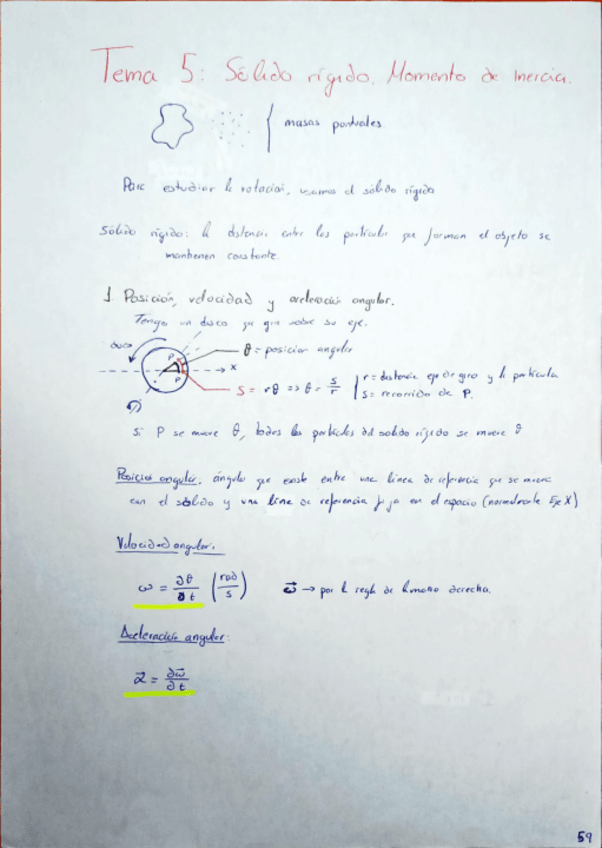 Tema 5: Sólido rígido. Momento de Inercia.
masas puntuales
Para estudiar la rotación, usamos el sólido rígido
Sólido rígido: la distancia entre las partículas que forman el objeto se
mantienen constante.
1. Posición, velocidad y aceleración angular.
Tengo un disco que gira sobre su eje.
disco
θ = posición angular
P
P
x
S = rθ => θ = s/r
r = distancia eje de giro y la partícula
s = recorrido de P.
Si P se mueve θ, todas las partículas del solido rígido se mueve θ
Posición angular: ángulo que existe entre una línea de referencia que se mueve
con el sólido y una línea de referencia fija en el espacio (normalmente Eje X)
Velocidad angular.
ω = ∂θ/∂t (rad/s)
ω⃗ → por la regla de la mano derecha.
Aceleración angular:
α⃗ = ∂ω⃗/∂t
59